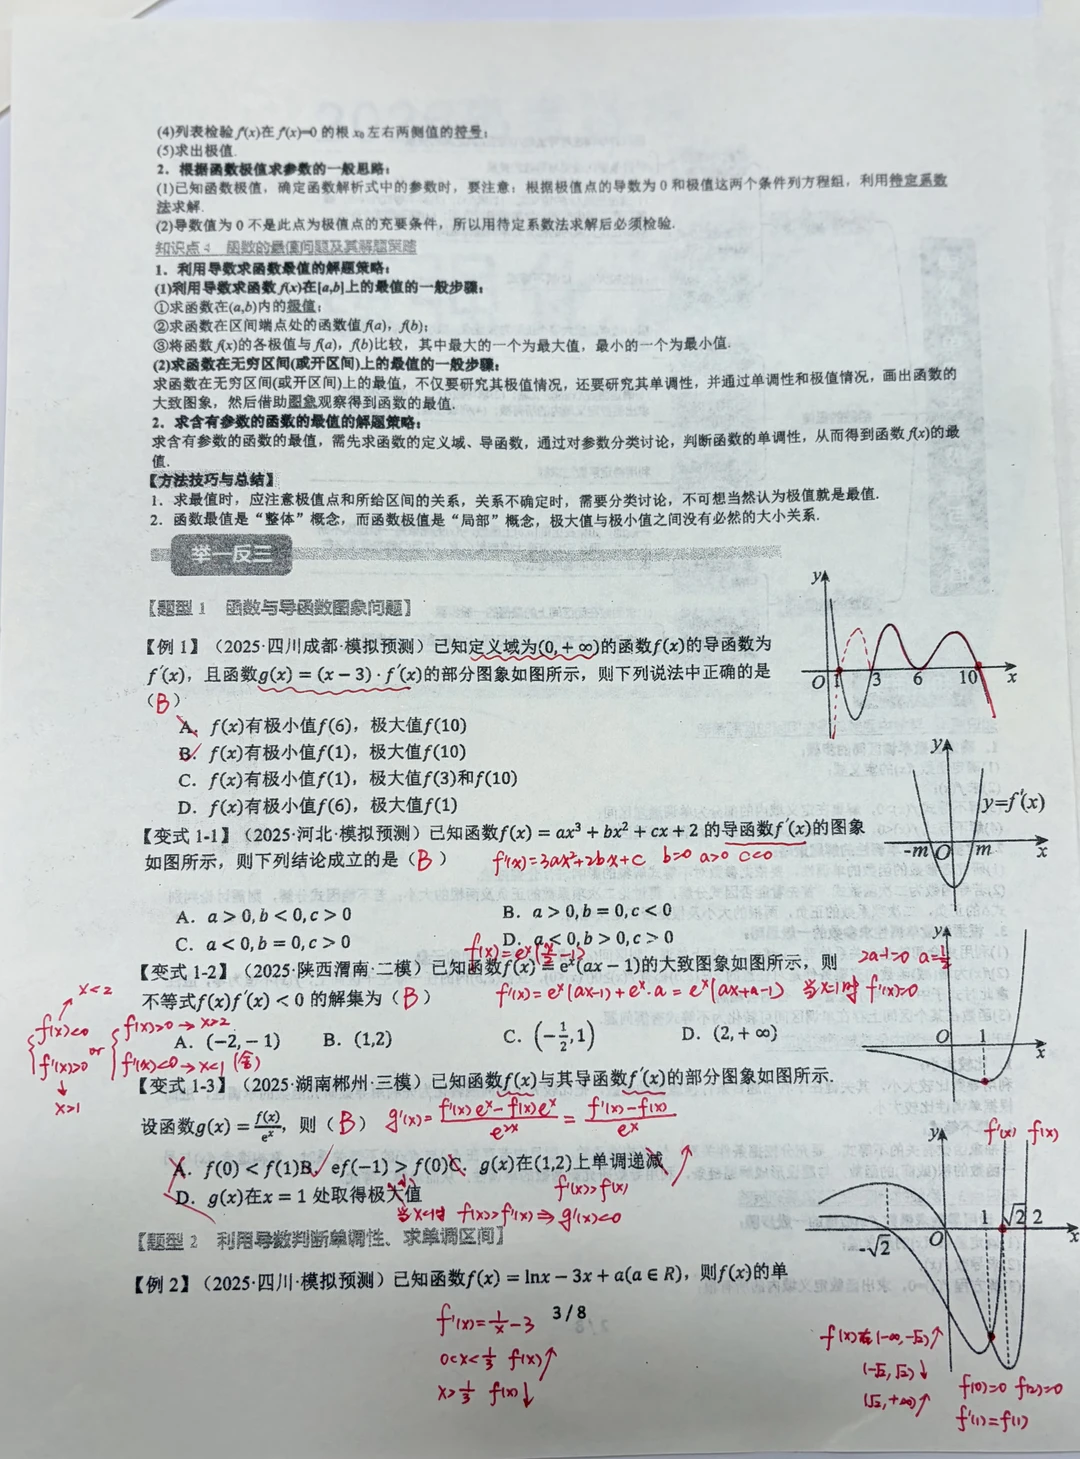 (4)列表检验 f′(x)在 f′(x)=0 的根 x₀ 左右两侧值的符号；
(5)求出极值.
2．根据函数极值求参数的一般思路：
(1)已知函数极值，确定函数解析式中的参数时，要注意：根据极值点的导数为 0 和极值这两个条件列方程组，利用待定系数
法求解.
(2)导数值为 0 不是此点为极值点的充要条件，所以用待定系数法求解后必须检验.
知识点 4　函数的最值问题及其解题策略
1．利用导数求函数最值的解题策略：
(1)利用导数求函数 f(x)在[a,b]上的最值的一般步骤：
①求函数在(a,b)内的极值；
②求函数在区间端点处的函数值 f(a)，f(b)；
③将函数 f(x)的各极值与 f(a)，f(b)比较，其中最大的一个为最大值，最小的一个为最小值.
(2)求函数在无穷区间(或开区间)上的最值的一般步骤：
求函数在无穷区间(或开区间)上的最值，不仅要研究其极值情况，还要研究其单调性，并通过单调性和极值情况，画出函数的
大致图象，然后借助图象观察得到函数的最值.
2．求含有参数的函数的最值的解题策略：
求含有参数的函数的最值，需先求函数的定义域、导函数，通过对参数分类讨论，判断函数的单调性，从而得到函数 f(x)的最
值.
【方法技巧与总结】
1．求最值时，应注意极值点和所给区间的关系，关系不确定时，需要分类讨论，不可想当然认为极值就是最值.
2．函数最值是“整体”概念，而函数极值是“局部”概念，极大值与极小值之间没有必然的大小关系.
举一反三
【题型 1　函数与导函数图象问题】
【例 1】（2025·四川成都·模拟预测）已知定义域为(0,＋∞)的函数f(x)的导函数为
f′(x)，且函数g(x) = (x − 3)·f′(x)的部分图象如图所示，则下列说法中正确的是
（B）
y
O 1 3 6 10 x
A．f(x)有极小值f(6)，极大值f(10)
B．f(x)有极小值f(1)，极大值f(10)
C．f(x)有极小值f(1)，极大值f(3)和f(10)
D．f(x)有极小值f(6)，极大值f(1)
y
y=f′(x)
-m O m x
【变式 1-1】（2025·河北·模拟预测）已知函数f(x) = ax³ + bx² + cx + 2 的导函数f′(x)的图象
如图所示，则下列结论成立的是（B）
f′(x)=3ax²+2bx+c　b=0 a>0 c<0
A．a > 0, b < 0, c > 0　B．a > 0, b = 0, c < 0
C．a < 0, b = 0, c > 0　D．a < 0, b > 0, c > 0
f(x)=eˣ(x/2-1)
【变式 1-2】（2025·陕西渭南·二模）已知函数f(x) = eˣ(ax − 1)的大致图象如图所示，则
2a-1=0 a=1/2
不等式f(x)f′(x) < 0 的解集为（B）
f′(x)=eˣ(ax-1)+eˣ·a=eˣ(ax+a-1)　当x=1时 f′(x)=0
x<2
f(x)<0
f′(x)>0
x>1
or
f(x)>0→x>2
f′(x)<0→x<1 (舍)
A．(−2, − 1)　B．(1,2)　C．(−1/2, 1)　D．(2, + ∞)
y
O 1 x
【变式 1-3】（2025·湖南郴州·三模）已知函数f(x)与其导函数f′(x)的部分图象如图所示.
设函数g(x) = f(x)/eˣ，则（B）
g′(x)=f′(x)eˣ-f(x)eˣ/e²ˣ=f′(x)-f(x)/eˣ
A．f(0) < f(1)B．ef(−1) > f(0)C．g(x)在(1,2)上单调递减
f′(x)>f(x)
D．g(x)在x = 1 处取得极大值
小
当x<1时 f(x)>f′(x)⇒g′(x)<0
y f′(x) f(x)
-√2 O 1 √2 2 x
【题型 2　利用导数判断单调性、求单调区间】
【例 2】（2025·四川·模拟预测）已知函数f(x) = lnx − 3x + a(a ∈ R)，则f(x)的单
f′(x)=1/x-3
0<x<1/3 f(x)↑
x>1/3 f(x)↓
3 / 8
f(x)在(-∞,-√2)↑
(-√2,√2)↓
(√2,+∞)↑
f(0)=0 f(2)=0
f′(1)=f(1)